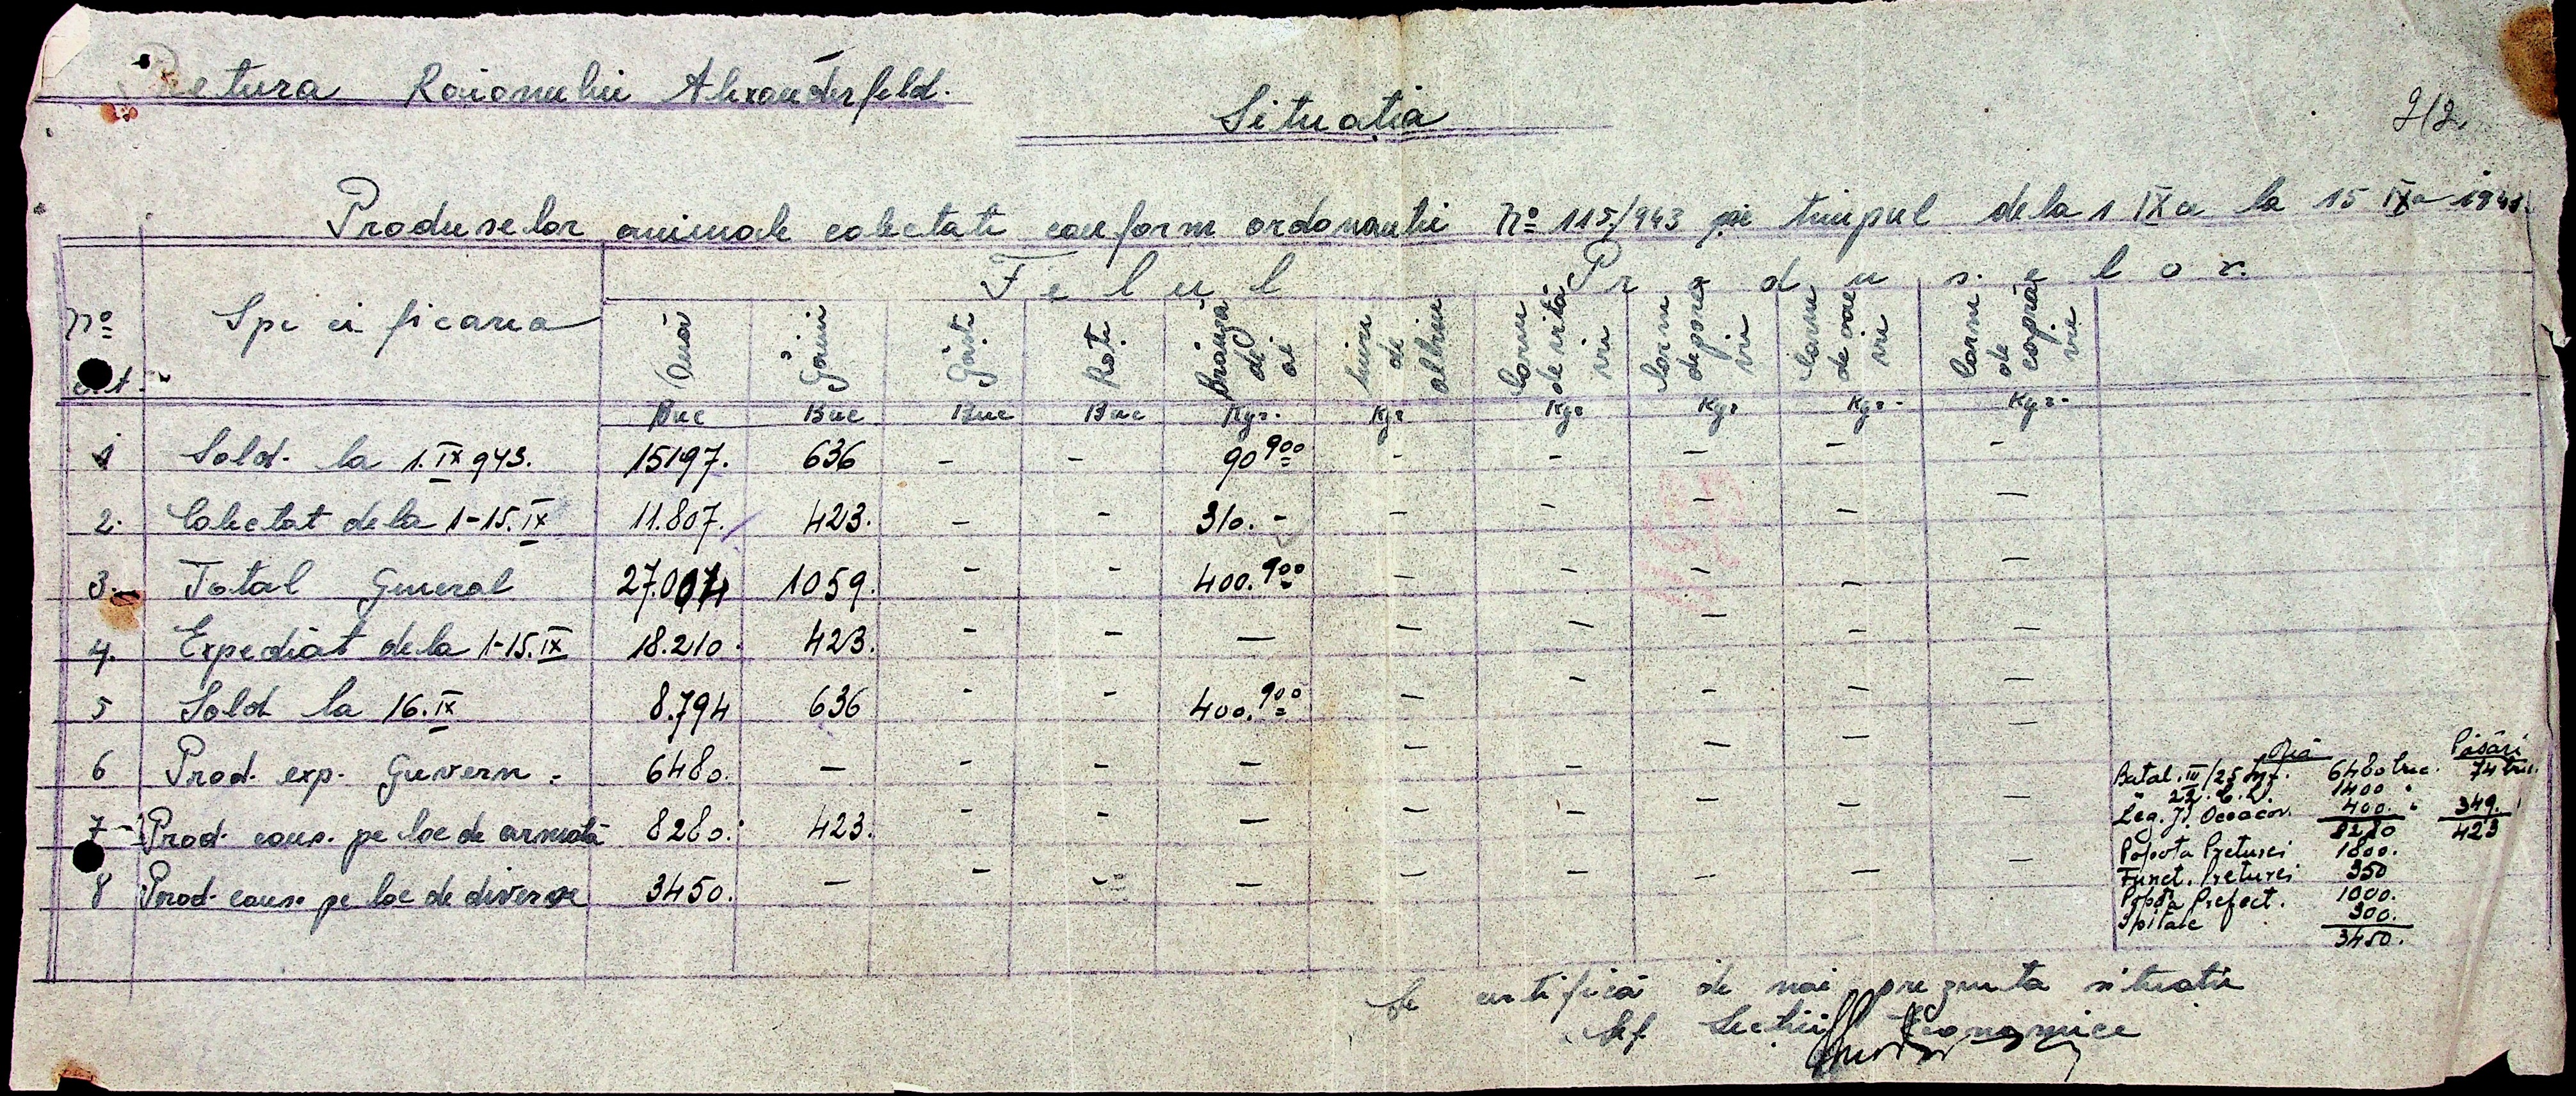 Pretura Raionului Alexanderfeld.
Situatia
212
Produselor animale colectate conform ordonantei No 115/943 pe timpul dela 1 IXa la 15 IXa 1943.
No crt. Specificarea Felul Produselor.
Ouă Găini Gâște Rațe Brânză de oi Miere de albine Carne de vită vie Carne de porc vie Carne de oaie vie Carne de capră vie
Buc Buc Buc Buc Kgr. Kgr Kgr Kgr Kgr. Kgr.
1 Sold. la 1.IX 943. 15197. 636 - - 90 900 - - - - -
2. Colectat dela 1-15.IX 11.807. 423. - - 310. - - - - - -
3. Total General 27.004 1059. - - 400.900 - - - - -
4. Expediat dela 1-15.IX 18.210. 423. - - - - - - - -
5 Sold la 16.IX 8.794 636 - - 400.900 - - - - -
6 Prod. exp. Guvern. 6480. - - - - - - - - -
7 Prod. cons. pe loc de armată 8280. 423. - - - - - - - -
8 Prod. cons. pe loc de diverse 3450. - - - - - - - - -
Ouă Păsări
Batal. III/25 Inf. 6480 buc. 74 buc.
" 22. 1400 "
Leg. J. Oceacov. 400. " 349.
8280 423
Popota Preturei 1800.
Funct. Preturei 350
Popota Prefect. 1000.
Spitale 300.
3450.
Se certifică de noi prezenta situatie
Șef Sectiei Economice